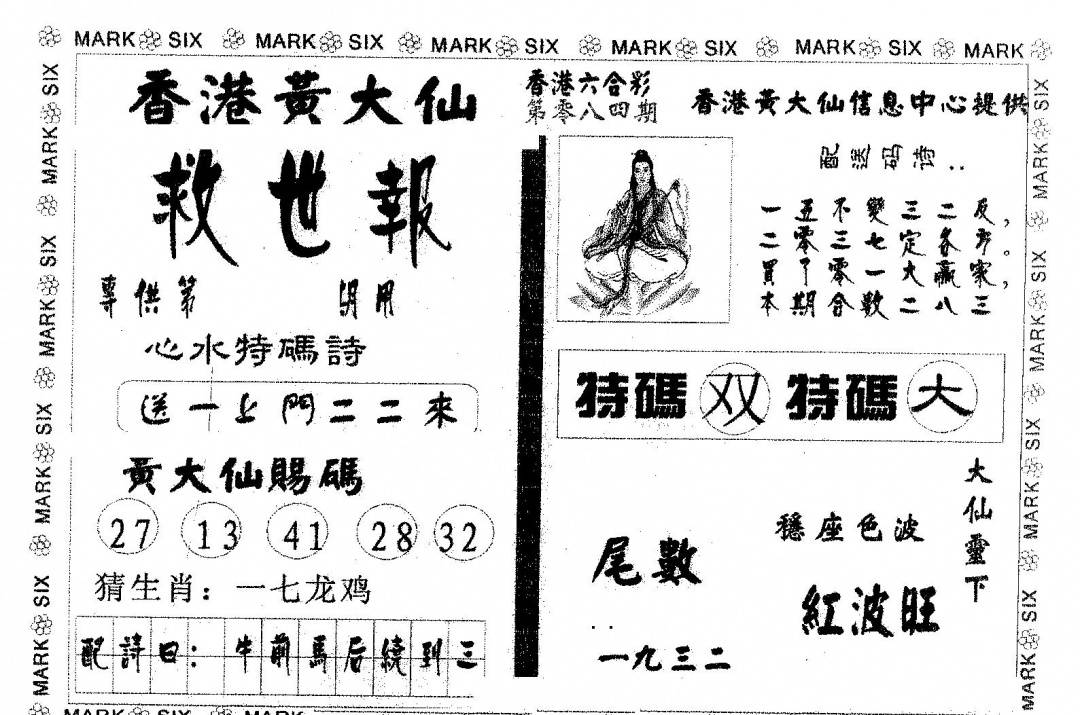 MARK SIX MARK SIX MARK SIX MARK SIX MARK SIX MARK
香港黃大仙
救世報
專供第 明用
心水特碼詩
送一上門二二來
黃大仙賜碼
27 13 41 28 32
猜生肖：一七龙鸡
配詩曰：牛前馬后繞到三
香港六合彩
第零八四期
香港黃大仙信息中心提供
配送码诗：
一五不變三二反，
二零三七定各 。
買了零一大贏家，
本期合數二八三
特碼 双 特碼 大
大仙靈下
穩座色波
紅波旺
尾數
..
一九三二
MARK SIX MARK SIX MARK SIX MARK SIX
MARK SIX MARK SIX MARK SIX MARK SIX
MARK SIX MARK